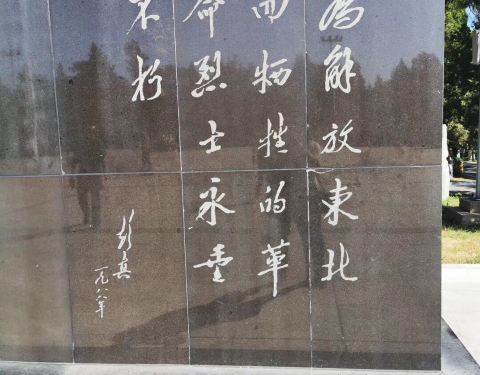 為解放東北
而牺牲的革
命烈士永垂
不朽
彭真
一九八八年